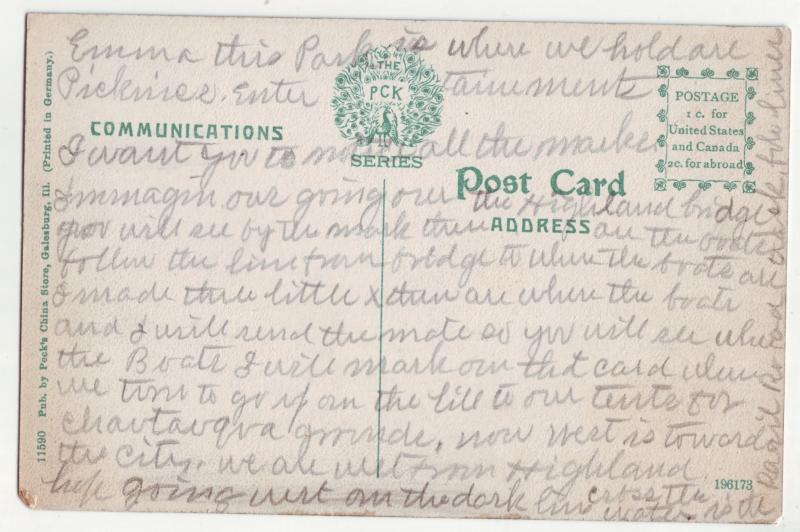 Emma this Park is where we hold are
Picknics. Enter tainement
THE
PCK
SERIES
COMMUNICATIONS
POSTAGE
1 c. for
United States
and Canada
2c. for abroad
Post Card
ADDRESS
I want you to all the marks
I immagin our going over the Highland bridge
you will see by the mark then are the boats
follow the line from bridge to where the boats are
I made three little x then are where the boats
and I will send the mate so you will see where
the Boats I will mark on that card when
we turn to go up on the hill to our tents for
Chautauqua grounds, now West is towards
the city. we are west from Highland
going west on the dark line cross the
water is the
Rail Road track, follow
11590 Pub. by Peck's China Store, Galesburg, Ill. (Printed in Germany.)
196173